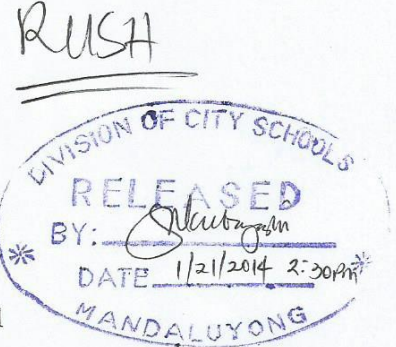 RUSH
DIVISION OF CITY SCHOOLS
RELEASED
BY:
DATE 1/21/2014 2:30pm
MANDALUYONG